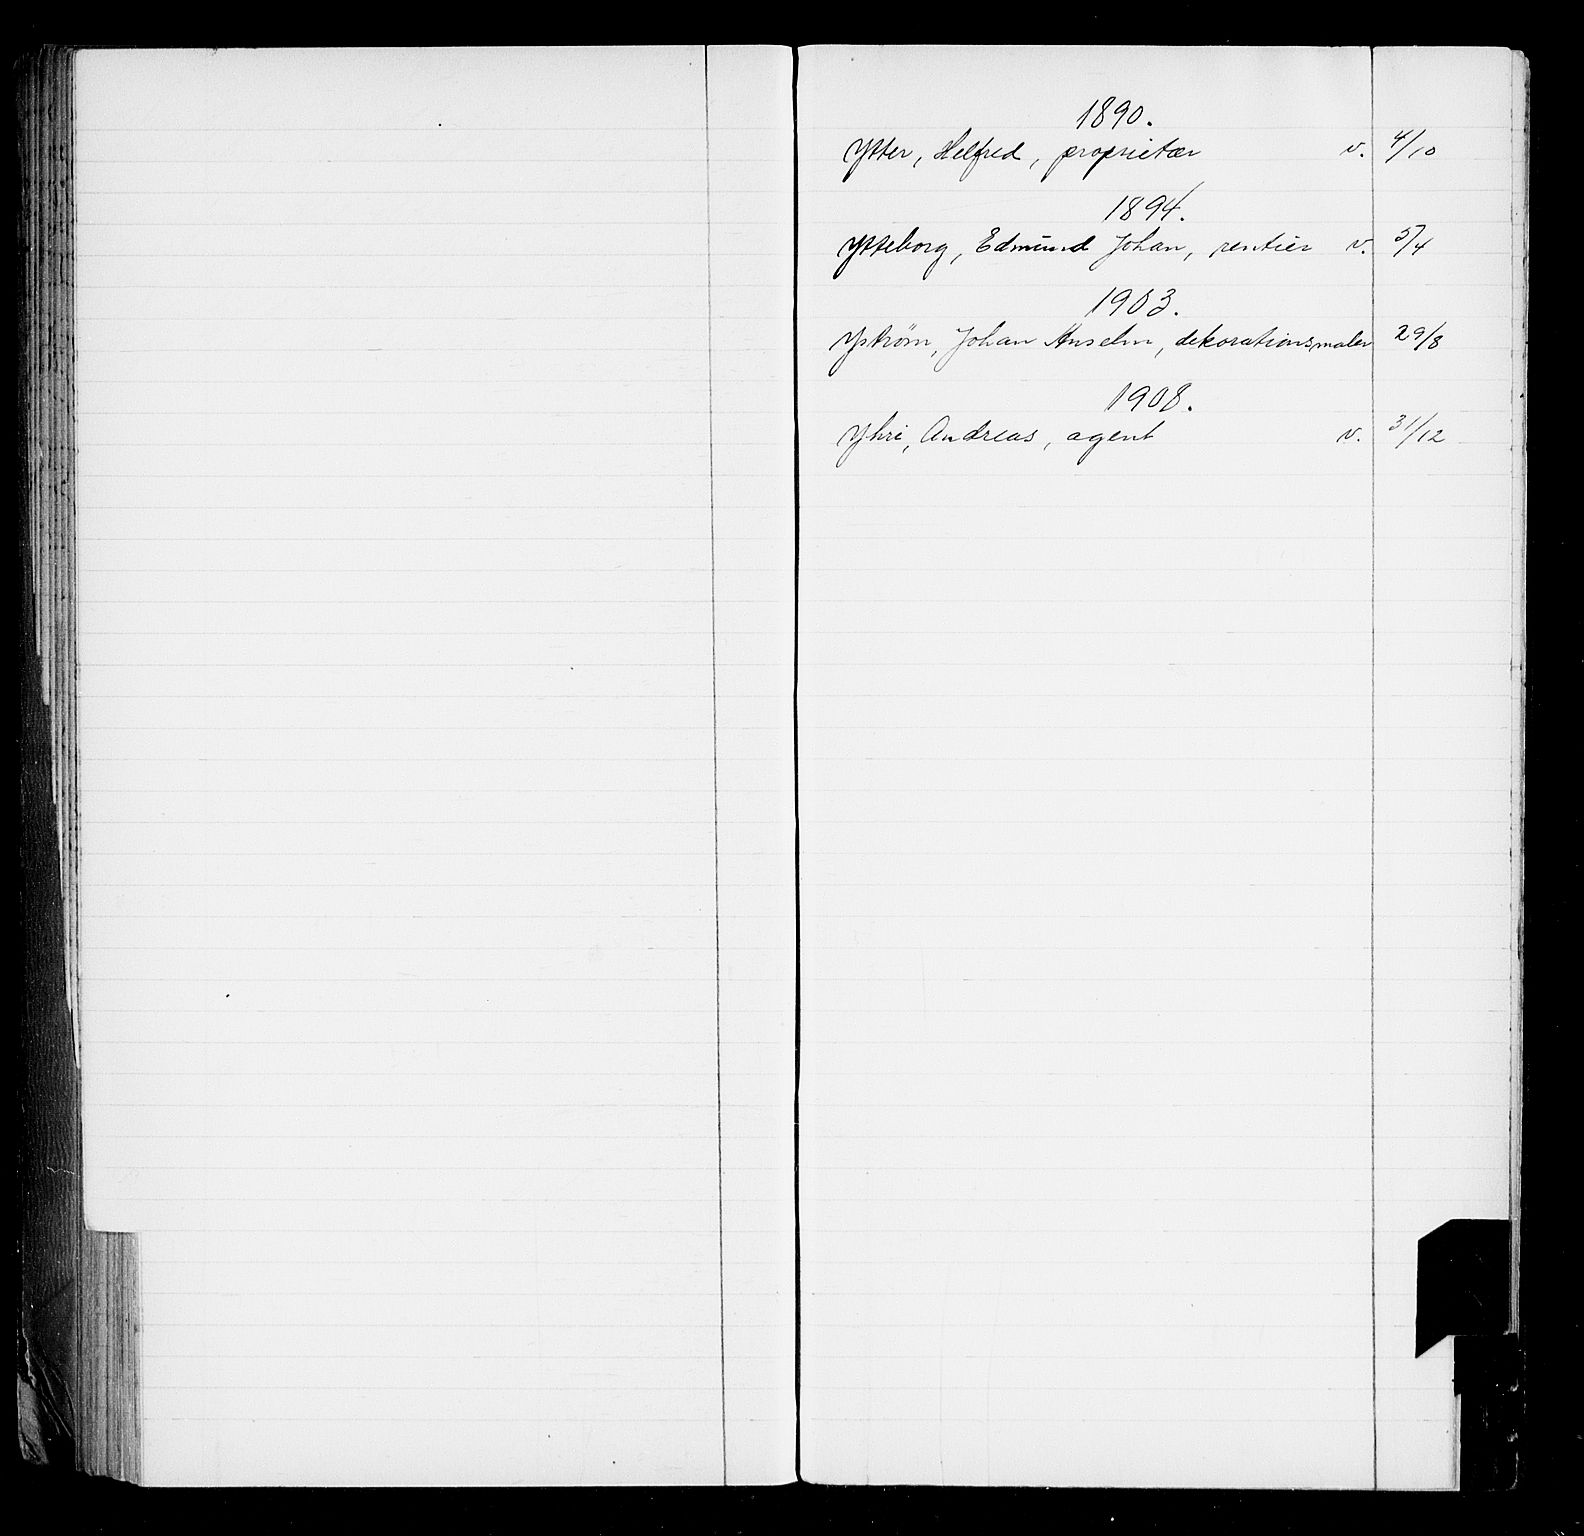 1890.
Ytter, Helfred, proprietær v. 4/10
1894.
Ytteborg, Edmund Johan, rentier v. 5/4
1903.
Ystrøm, Johan Anselm, dekorationsmaler 29/8
1908.
Yhri, Andreas, agent v. 31/12